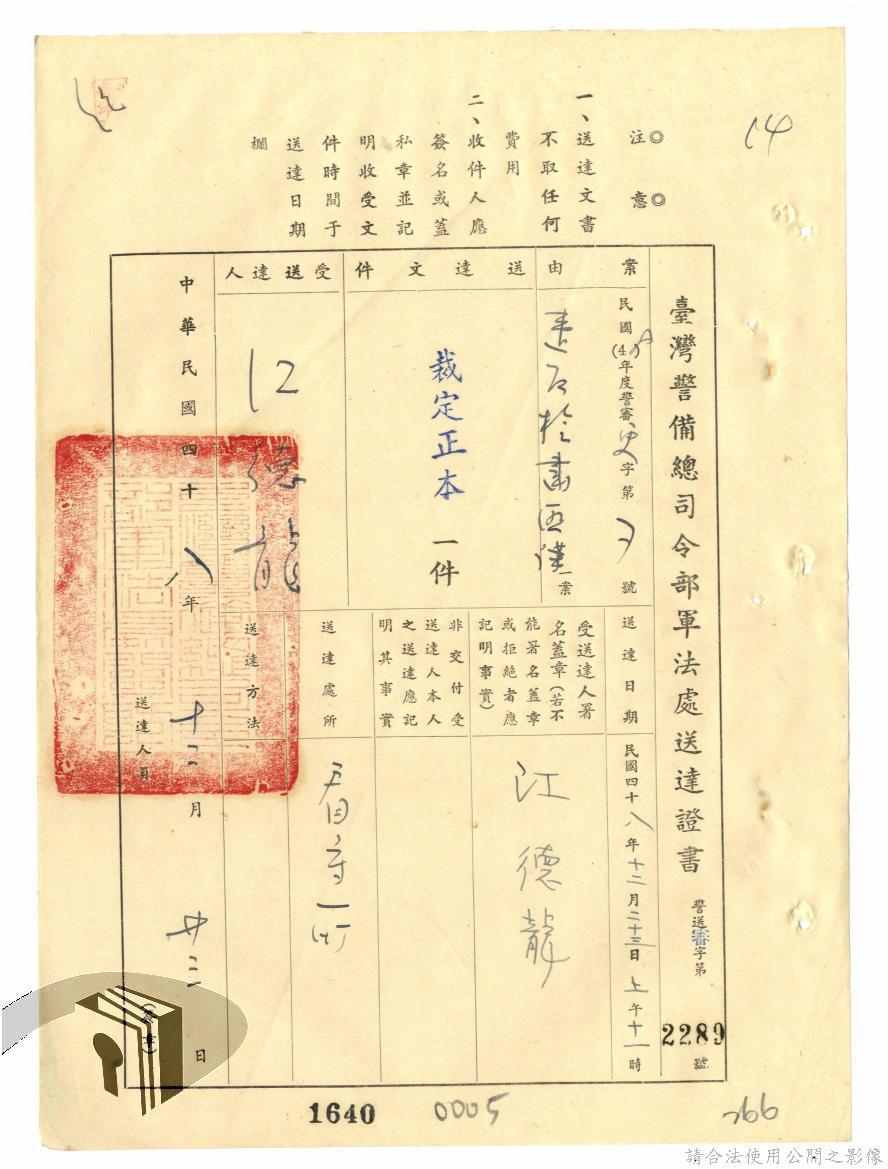 14
◎注意◎
一、送達文書
不取任何
費用
二、收件人應
簽名或蓋
私章並記
明收受文
件時間于
送達日期
欄
臺灣警備總司令部軍法處送達證書
警送審字第2289號
案由
民國(48)年度警審更字第 號
一案
送達文件
裁定正本一件
受送達人
江德龍
送達日期
民國四十八年十二月二十三日上午十一時
受送達人署
名蓋章(若不
能署名蓋章
或拒絕者應
記明事實)
江德龍
非交付受
送達人本人
之送達應記
明其事實
送達處所
看守所
送達方法
中華民國四十八年十二月廿三日
送達人員
(簽章)
1640
0005
266
請合法使用公開之影像